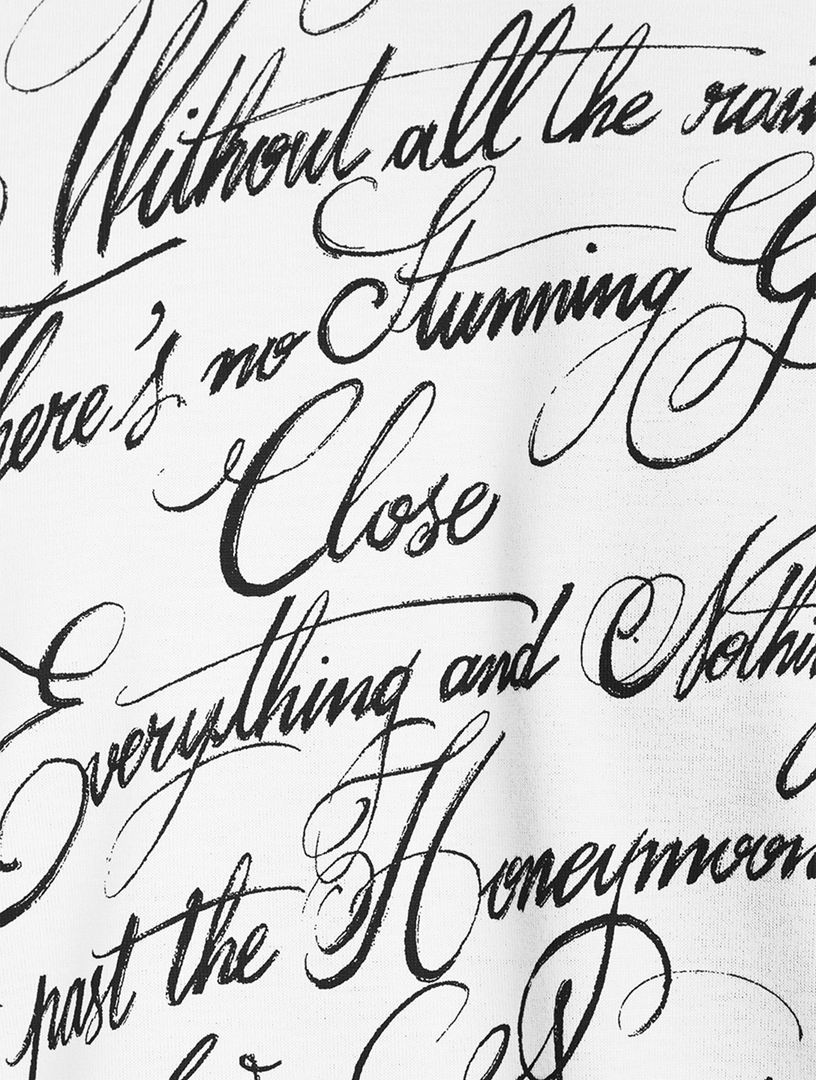 Without all the rain
There's no Stunning G
Close
Everything and Nothin
past the Honeymoon